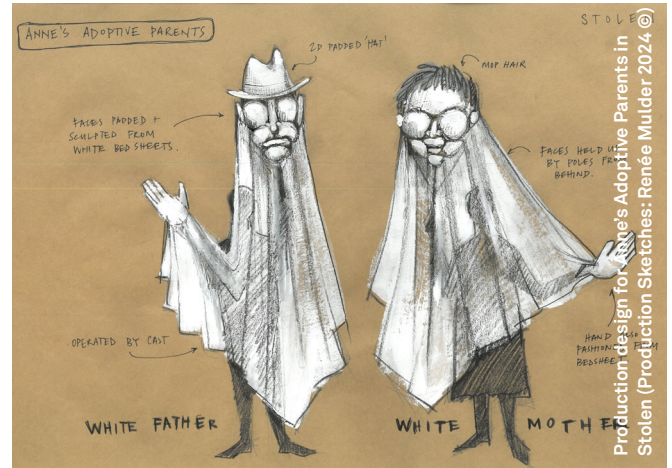 ANNE'S ADOPTIVE PARENTS
STOLEN
2D PADDED 'HAT'
MOP HAIR
FACES PADDED +
SCULPTED FROM
WHITE BED SHEETS.
FACES HELD UP
BY POLES FROM
BEHIND.
OPERATED BY CAST
HAND ALSO
FASHIONED FROM
BEDSHEET
WHITE FATHER
WHITE MOTHER
Production design for Anne's Adoptive Parents in
Stolen (Production Sketches: Renée Mulder 2024 ©)